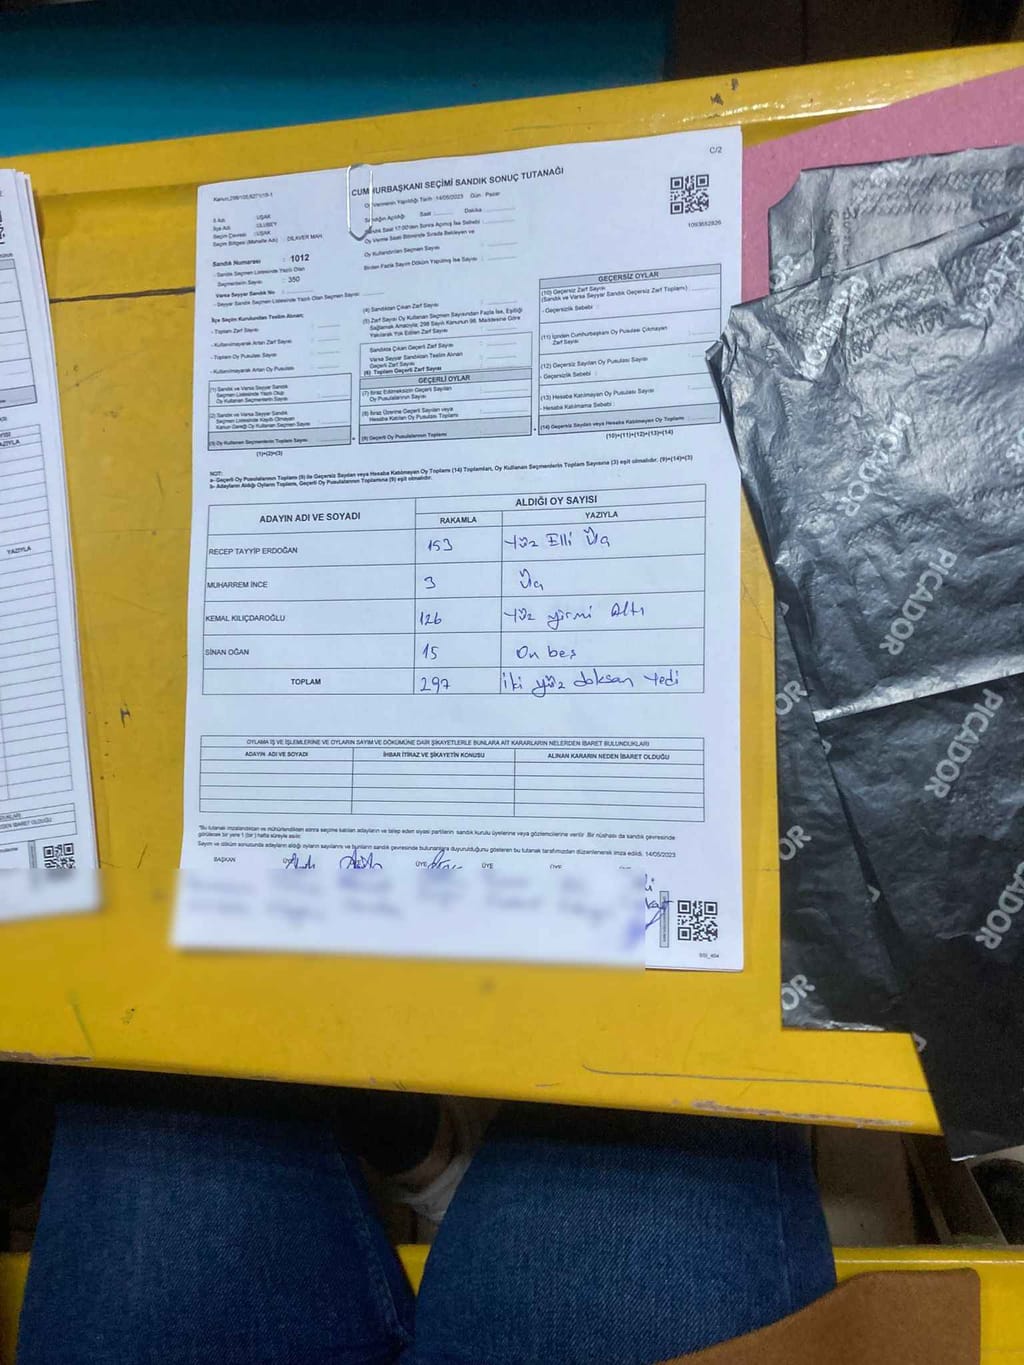 C/2
Kanun;298/105,6271/19-1
CUMHURBAŞKANI SEÇİMİ SANDIK SONUÇ TUTANAĞI
Oy Vermenin Yapıldığı Tarih :14/05/2023 Gün : Pazar
1093652826
İl Adı : UŞAK
İlçe Adı : ULUBEY
Seçim Çevresi : UŞAK
Seçim Bölgesi (Mahalle Adı) : DİLAVER MAH.
Sandığın Açıldığı Saat Dakika
Sandık Saat 17:00'den Sonra Açılmış İse Sebebi :
Oy Verme Saati Bitiminde Sırada Bekleyen ve
Oy Kullandırılan Seçmen Sayısı
Birden Fazla Sayım Döküm Yapılmış İse Sayısı :
Sandık Numarası : 1012
- Sandık Seçmen Listesinde Yazılı Olan
Seçmenlerin Sayısı : 350
Varsa Seyyar Sandık No :
- Seyyar Sandık Seçmen Listesinde Yazılı Olan Seçmen Sayısı
İlçe Seçim Kurulundan Teslim Alınan;
- Toplam Zarf Sayısı :
- Kullanılmayarak Artan Zarf Sayısı :
- Toplam Oy Pusulası Sayısı :
- Kullanılmayarak Artan Oy Pusulası :
(1) Sandık ve Varsa Seyyar Sandık
Seçmen Listesinde Yazılı Olup
Oy Kullanan Seçmenlerin Sayısı
(2) Sandık ve Varsa Seyyar Sandık
Seçmen Listesinde Kayıtlı Olmayan
Kanun Gereği Oy Kullanan Seçmen Sayısı
(3) Oy Kullanan Seçmenlerin Toplam Sayısı
(1)+(2)=(3)
(4) Sandıktan Çıkan Zarf Sayısı
(5) Zarf Sayısı Oy Kullanan Seçmen Sayısından Fazla İse, Eşitliği
Sağlamak Amacıyla; 298 Sayılı Kanunun 98. Maddesine Göre
Yakılarak Yok Edilen Zarf Sayısı
Sandıkta Çıkan Geçerli Zarf Sayısı
Varsa Seyyar Sandıktan Teslim Alınan
Geçerli Zarf Sayısı
(6) Toplam Geçerli Zarf Sayısı
GEÇERLİ OYLAR
(7) İtiraz Edilmeksizin Geçerli Sayılan
Oy Pusulalarının Sayısı
(8) İtiraz Üzerine Geçerli Sayılan veya
Hesaba Katılan Oy Pusulası Toplamı
(9) Geçerli Oy Pusulalarının Toplamı
GEÇERSİZ OYLAR
(10) Geçersiz Zarf Sayısı
(Sandık ve Varsa Seyyar Sandık Geçersiz Zarf Toplamı)
- Geçersizlik Sebebi :
(11) İçinden Cumhurbaşkanı Oy Pusulası Çıkmayan
Zarf Sayısı
(12) Geçersiz Sayılan Oy Pusulası Sayısı
- Geçersizlik Sebebi :
(13) Hesaba Katılmayan Oy Pusulası Sayısı
- Hesaba Katılmama Sebebi :
(14) Geçersiz Sayılan veya Hesaba Katılmayan Oy Toplamı
(10)+(11)+(12)+(13)=(14)
NOT:
a- Geçerli Oy Pusulalarının Toplamı (9) ile Geçersiz Sayılan veya Hesaba Katılmayan Oy Toplamı (14) Toplamları, Oy Kullanan Seçmenlerin Toplam Sayısına (3) eşit olmalıdır. (9)+(14)=(3)
b- Adayların Aldığı Oyların Toplamı, Geçerli Oy Pusulalarının Toplamına (9) eşit olmalıdır.
ADAYIN ADI VE SOYADI
ALDIĞI OY SAYISI
RAKAMLA YAZIYLA
RECEP TAYYİP ERDOĞAN 153 Yüz Elli Üç
MUHARREM İNCE 3 Üç
KEMAL KILIÇDAROĞLU 126 Yüz yirmi Altı
SİNAN OĞAN 15 On beş
TOPLAM 297 İki yüz doksan Yedi
OYLAMA İŞ VE İŞLEMLERİNE VE OYLARIN SAYIM VE DÖKÜMÜNE DAİR ŞİKAYETLERLE BUNLARA AİT KARARLARIN NELERDEN İBARET BULUNDUKLARI
ADAYIN ADI VE SOYADI İHBAR İTİRAZ VE ŞİKAYETİN KONUSU ALINAN KARARIN NEDEN İBARET OLDUĞU
*Bu tutanak imzalandıktan ve mühürlendikten sonra seçime katılan adayların ve talep eden siyasi partilerin sandık kurulu üyelerine veya gözlemcilerine verilir. Bir nüshası da sandık çevresinde
görülecek bir yere 1 (bir) hafta süreyle asılır.
Sayım ve döküm sonucunda adayların aldığı oyların sayılarını ve bunların sandık çevresinde bulunanlara duyurulduğunu gösteren bu tutanak tarafımızdan düzenlenerek imza edildi. 14/05/2023
BAŞKAN ÜYE ÜYE ÜYE ÜYE
YAZIYLA
PICADOR
PICADOR
PICADOR
PICADOR